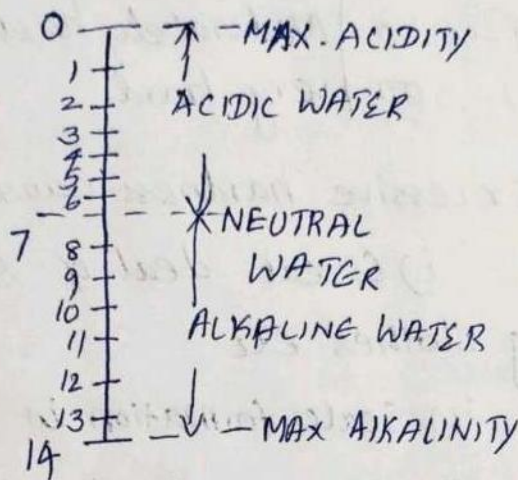 0 - MAX. ACIDITY
1
2 ACIDIC WATER
3
4
5
6
7 NEUTRAL
8 WATER
9
10
11 ALKALINE WATER
12
13
14 - MAX ALKALINITY